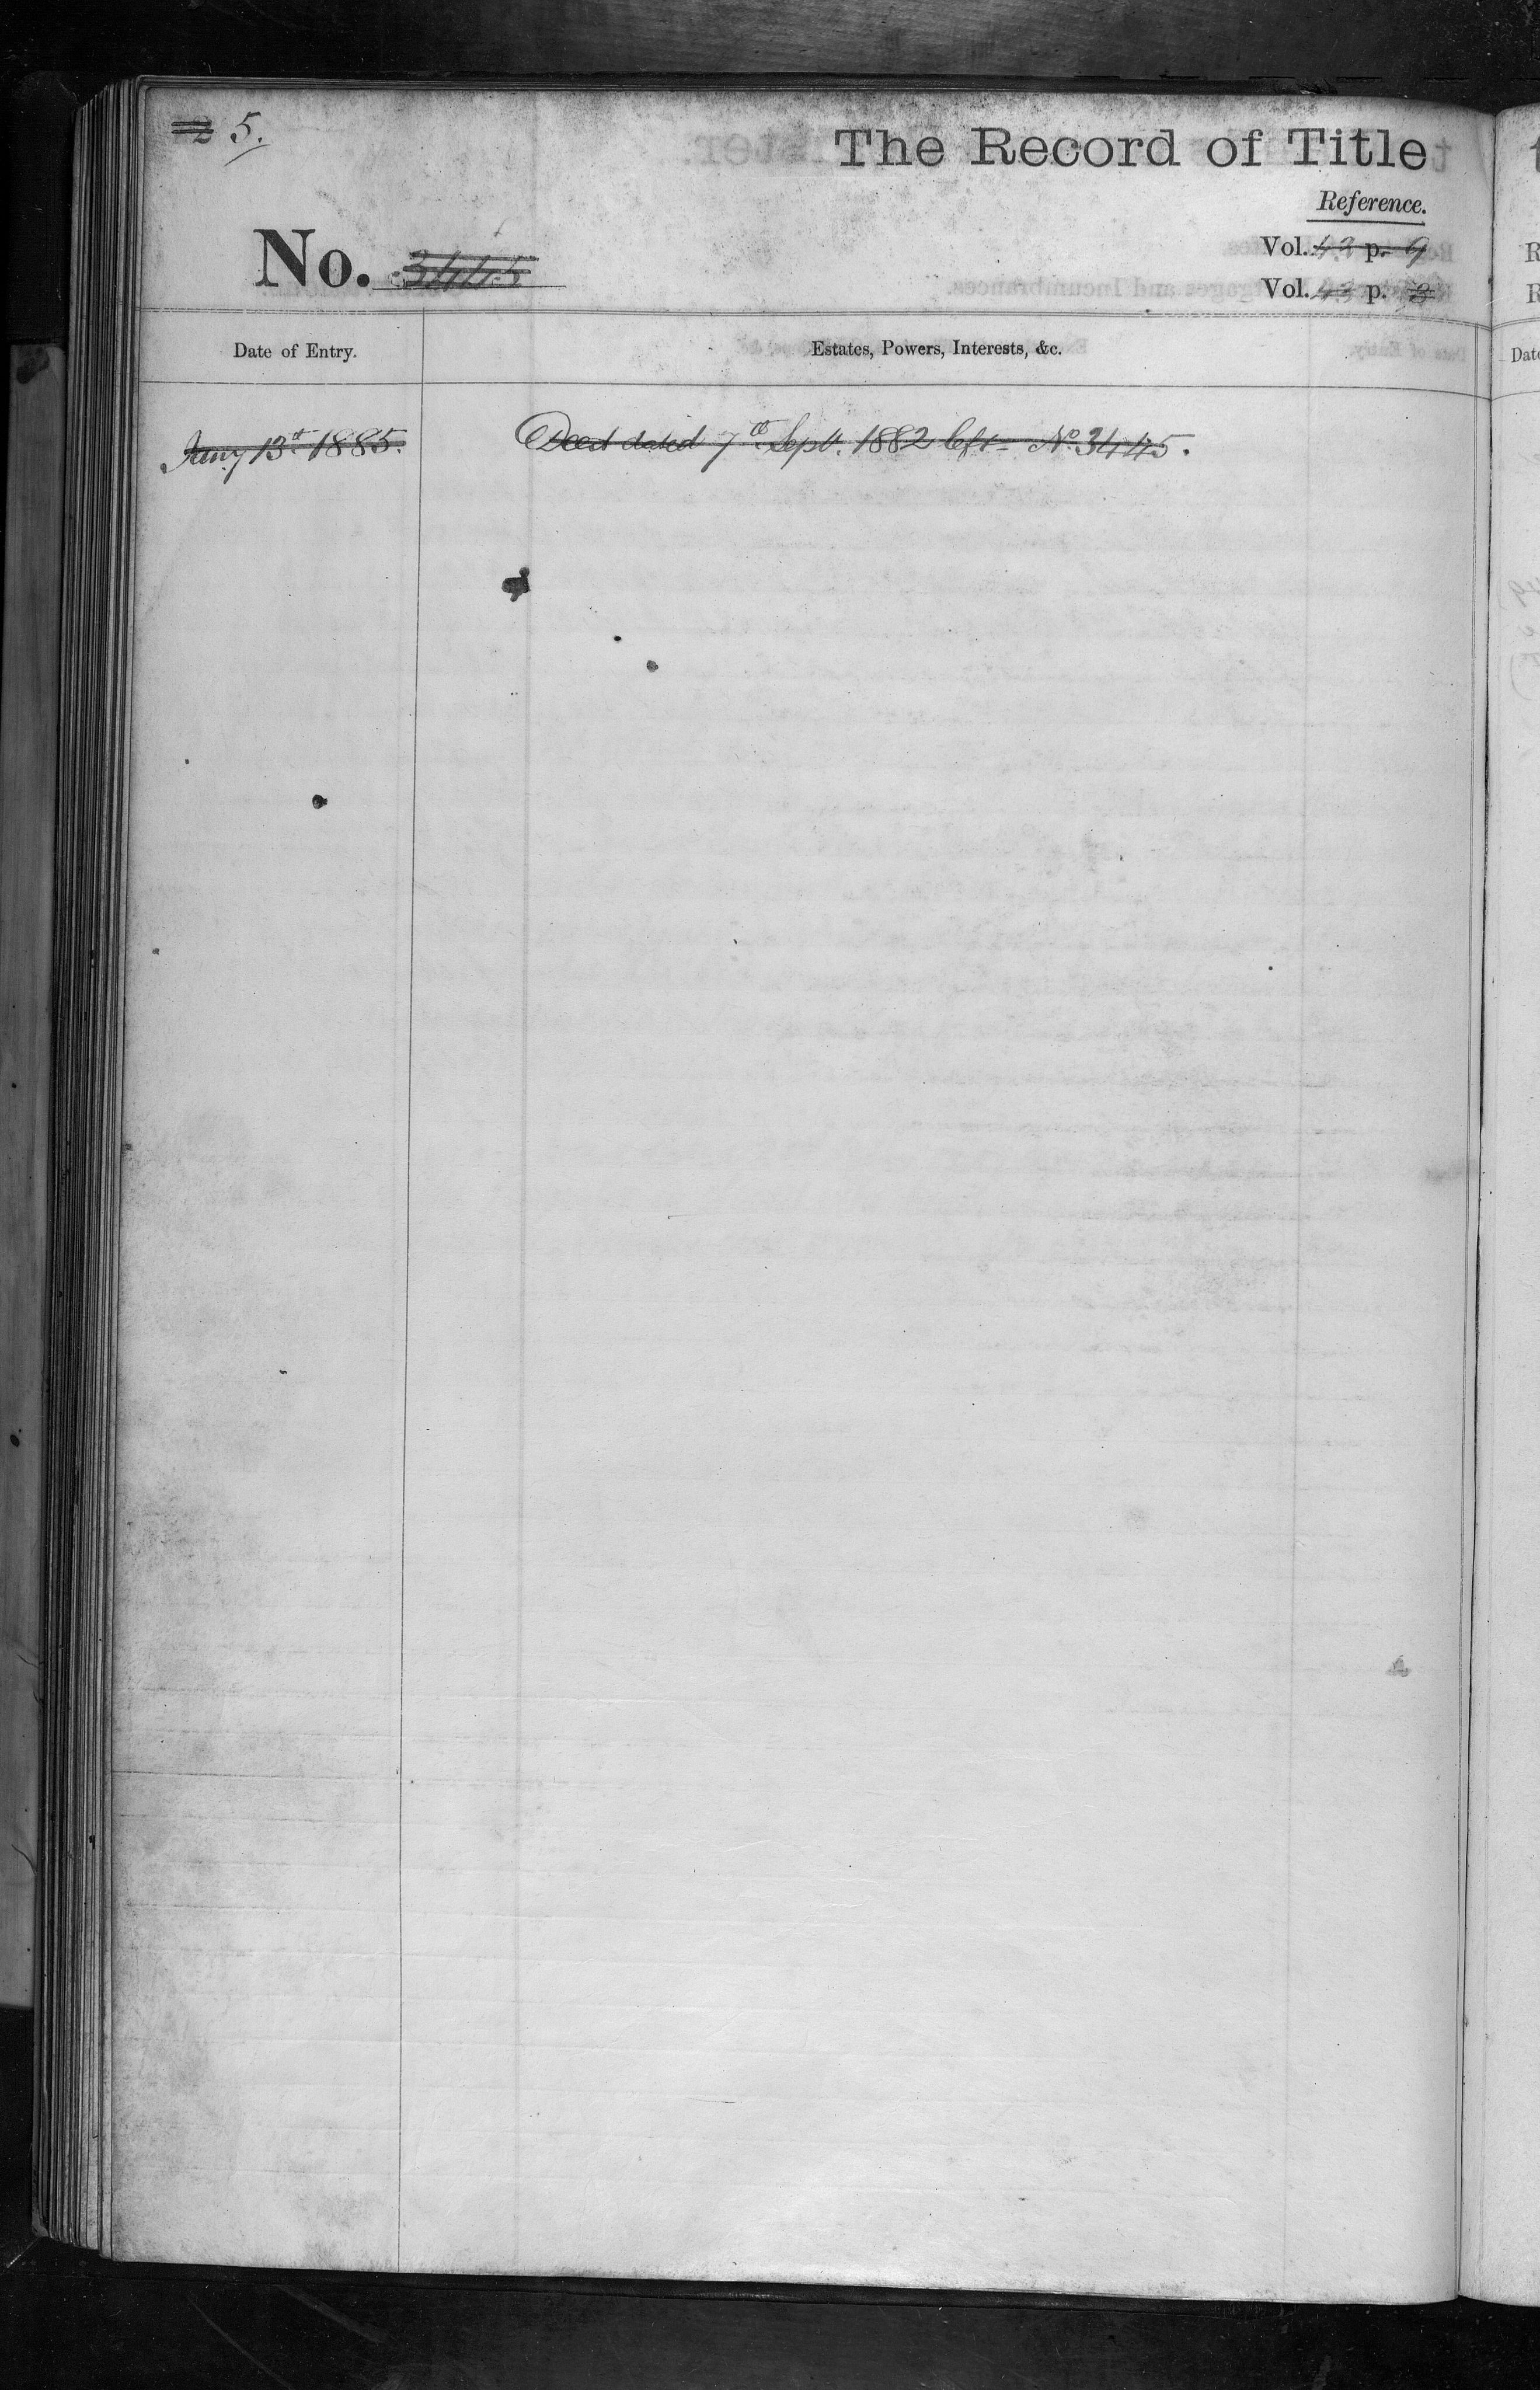 2 5.
The Record of Title
Reference.
No. 3445
Vol. 43 p. 9
Vol. 43 p. 3
Date of Entry.
Estates, Powers, Interests, &c.
Jany 13th 1885.
Deed dated 7th Sept. 1882 left No. 3445.